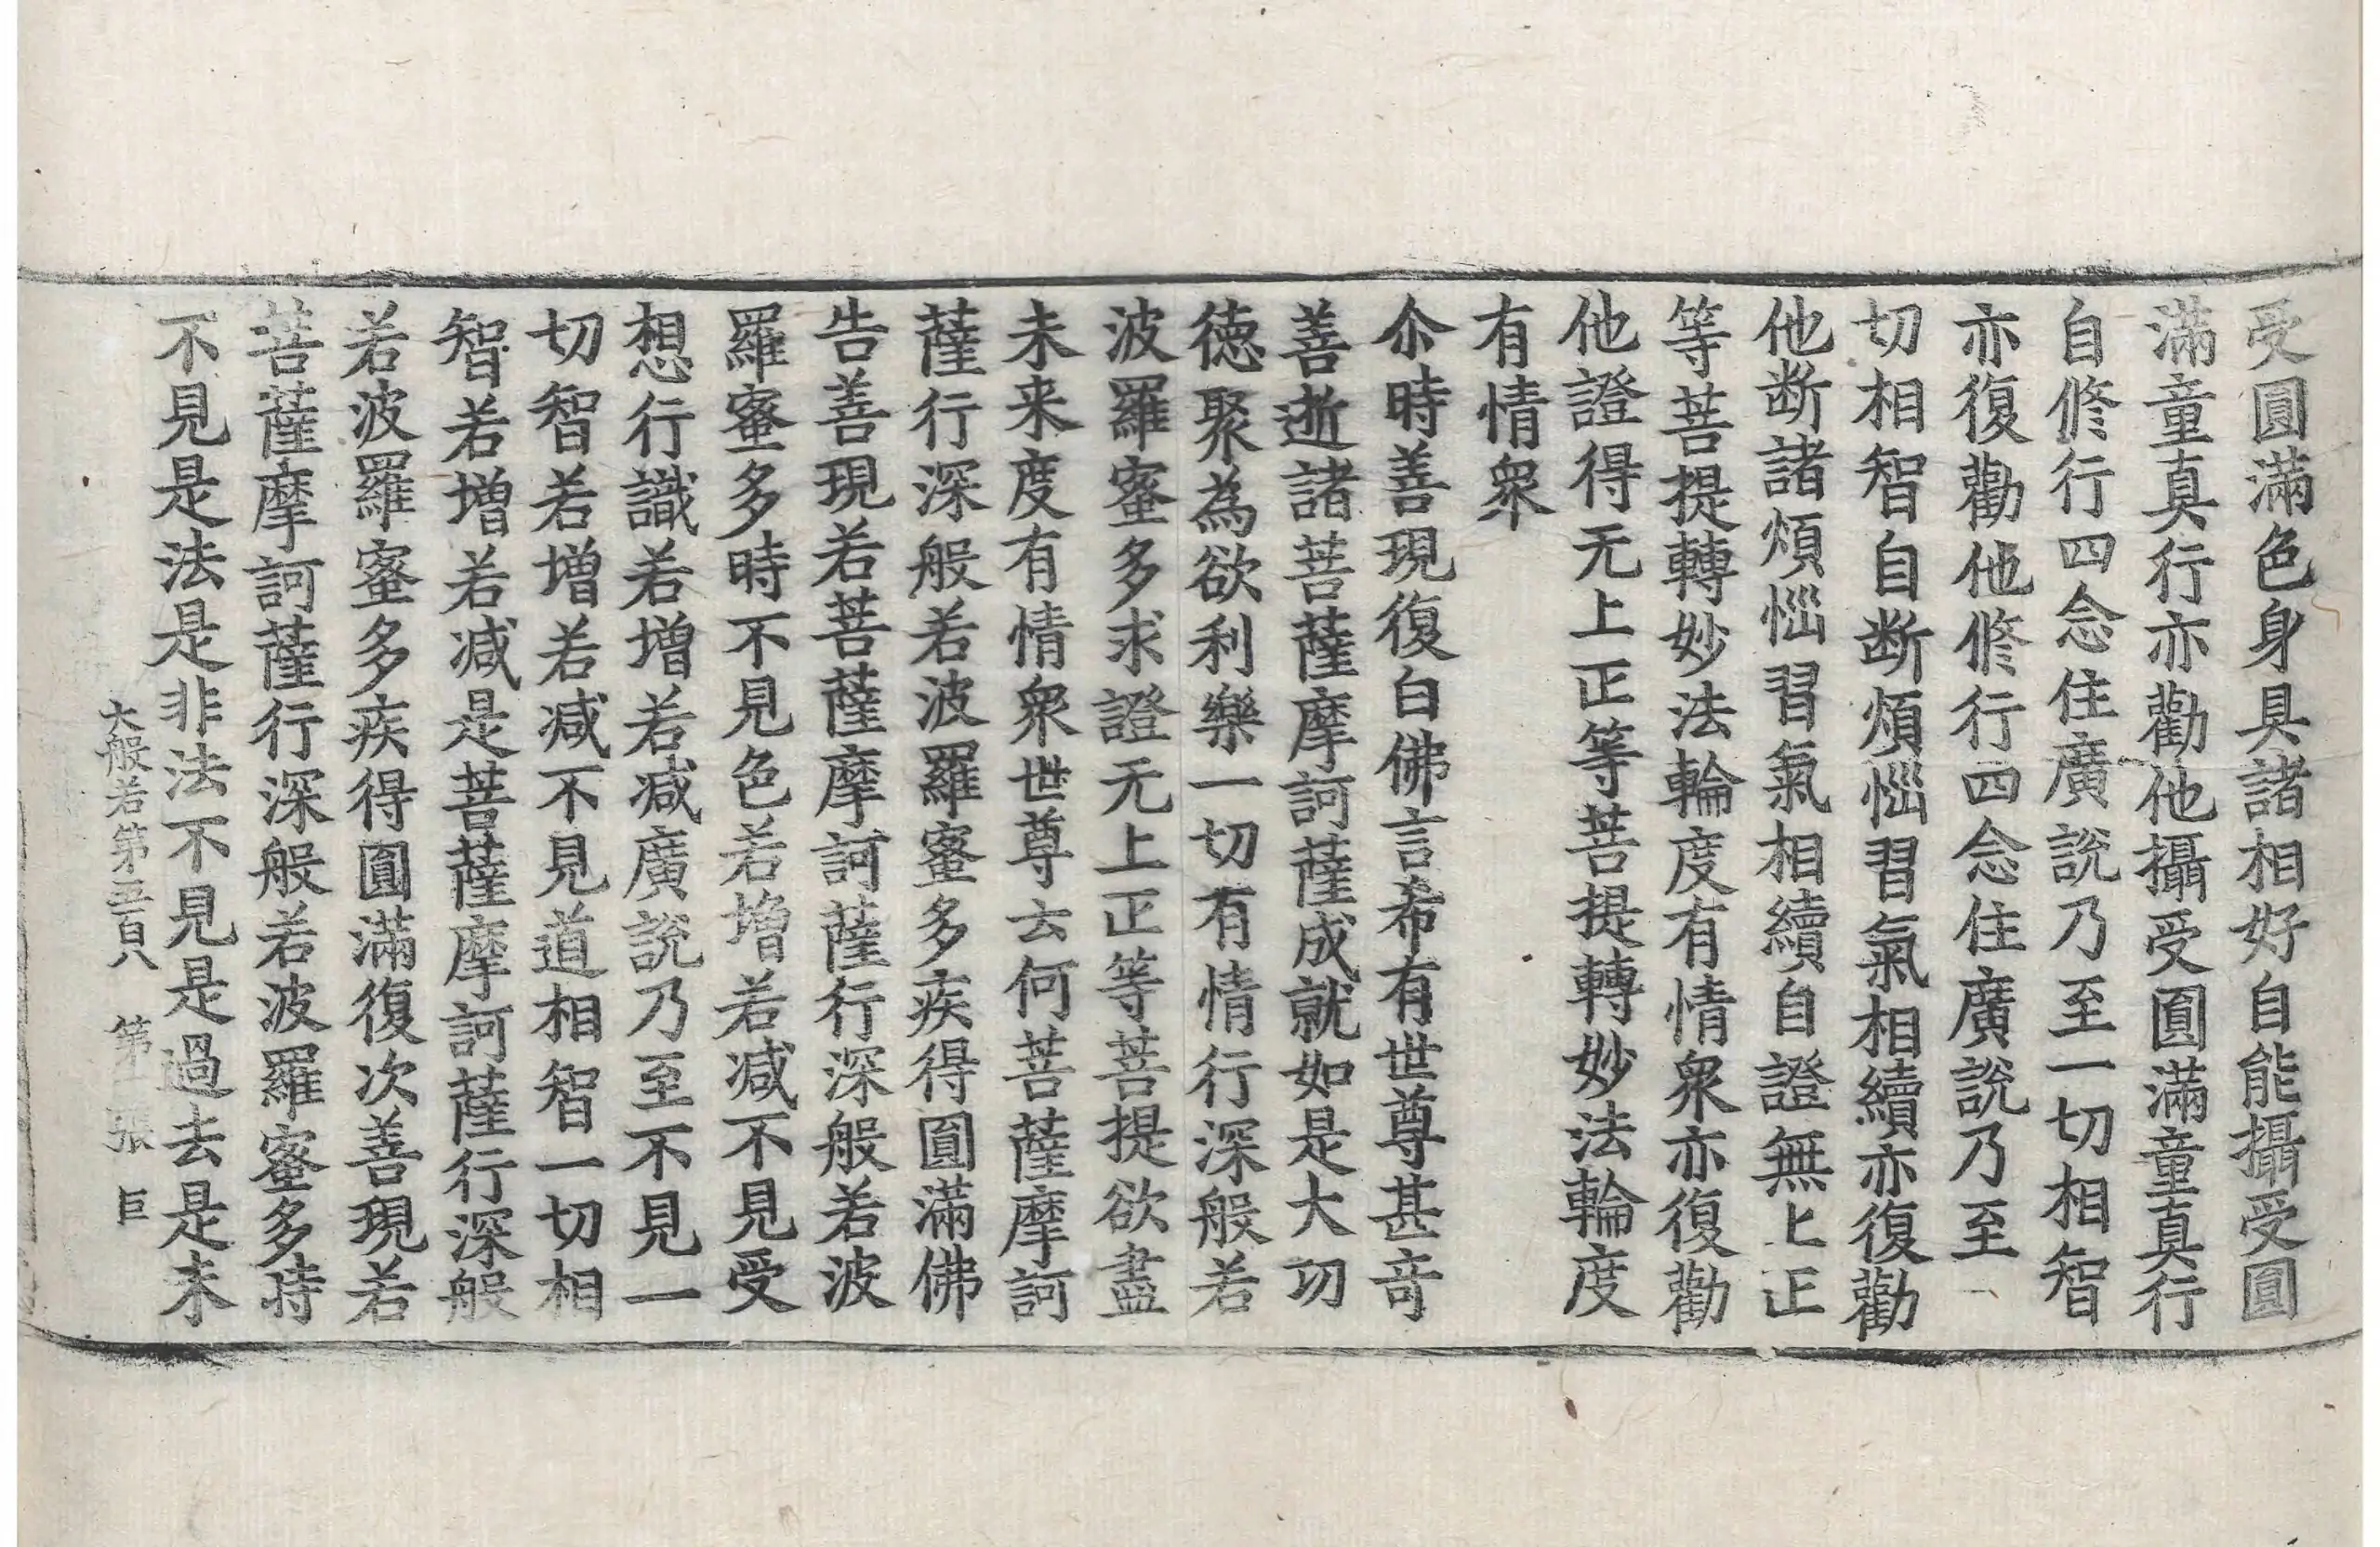 受圓滿色身具諸相好自能攝受圓
滿童真行亦勸他攝受圓滿童真行
自修行四念住廣說乃至一切相智
亦復勸他修行四念住廣說乃至一
切相智自断煩惱習氣相續亦復勸
他断諸煩惱習氣相續自證無上正
等菩提轉妙法輪度有情衆亦復勸
他證得无上正等菩提轉妙法輪度
有情衆
尒時善現復白佛言希有世尊甚竒
善逝諸菩薩摩訶薩成就如是大功
徳聚為欲利樂一切有情行深般若
波羅蜜多求證无上正等菩提欲盡
未来度有情衆世尊云何菩薩摩訶
薩行深般若波羅蜜多疾得圓滿佛
告善現若菩薩摩訶薩行深般若波
羅蜜多時不見色若增若減不見受
想行識若增若減廣說乃至不見一
切智若增若減不見道相智一切相
智若增若減是菩薩摩訶薩行深般
若波羅蜜多疾得圓滿復次善現若
菩薩摩訶薩行深般若波羅蜜多時
不見是法是非法不見是過去是未
大般若第五百八 第 張 巨